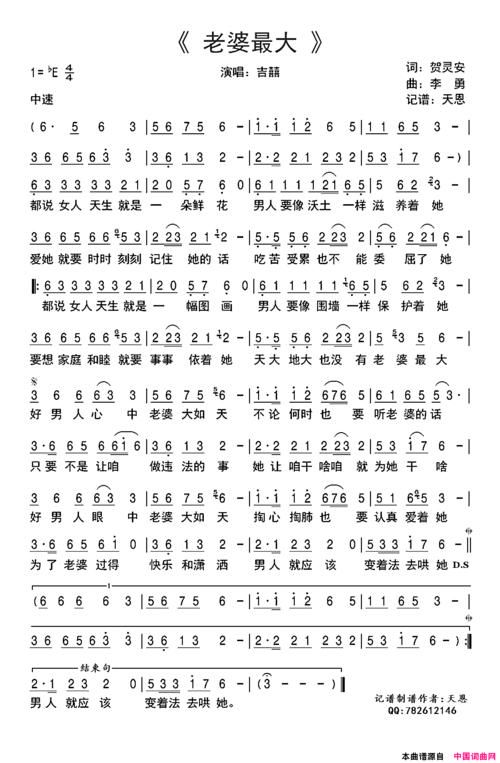 《 老婆最大 》
1=♭E 4/4
演唱：吉囍
词：贺灵安
曲：李 勇
中速
记谱：天恩
(6· 5 6 3 | 5 6 7 5 6 - | 1· 1 1 2 6 5 | 1 1 6 5 3 - |
3 6 6 5 6 3 3 | 3 6 1 3 2 - | 2· 2 2 1 2 3 | 5 3 1 7 6 - )|
6 3 3 3 3 3 2 1 | 2 0 5 7 6 0 | 6 1 1 1 1 2 1 6 5 | 5 6 2 3 - |
都说女人天生就是一 朵鲜花 男人要像沃土一样滋 养着她
3 6 6 5 6 6 5 3 | 2 2 3 2 1 2 - | 5· 5 5 6 5 2 | 5 6 2 2 1 6 - |
爱她就要时时刻刻记住 她的话 吃苦受累也不 能委 屈了她
𝄆 6 3 3 3 3 3 2 1 | 2 0 5 7 6 0 | 6 1 1 1 1 1 6 5 | 5 6 2 3 - |
都说女人天生就是一 幅图画 男人要像围墙一样保 护着她
3 6 6 5 6 6 5 3 | 2 2 3 2 1 2 - | 5· 5 5 6 5 2 | 5 5 3 5 6 - |
要想家庭和睦就要事事 依着她 天大地大也没 有老婆最大
3 6 6 6 3 3 | 5 6 7 5 6 - | 1· 1 1 2 6 7 6 | 6 1 6 5 5 3· |
好男人心 中 老婆大如天 不论何时也 要 听老婆的话
3· 6 6 5 6 6 1 6 | 3 6 1 3 2 - | 2· 1 2 1 2 2 3 2 | 5 3 1 7 6 - |
只要不是让咱 做违法的事 她让咱干啥咱就为她干啥
3 6 6 6 3 3 | 5 6 7 5 6 - | 1· 1 1 2 6 7 6 | 5 1 6 5 3 - |
好男人眼 中 老婆大如天 掏心掏肺也 要 认真爱着她
3· 6 6 5 6 1 0 | 3 6 1 3 2 - | 2· 1 2 3 2 0 | 5 3 3 1 7 6 - ‖
为了老婆过得 快乐和潇洒 男人就应该 变着法去哄她 D.S
1
(6 6 6 3 | 5 6 7 5 6 - | 1· 1 1 2 6 5 | 1 1 6 5 3 - |
3 6 6 5 6 3 3 | 3 6 1 3 2 - | 2· 2 2 1 2 3 | 5 3 1 7 6 - ):‖
结束句
2· 1 2 3 2 0 | 5 3 3 3 1 7 6 - | (3 - - - )‖
男人就应该 变着法去哄她。
记谱制谱作者：天恩
QQ:782612146
本曲谱源自 中国词曲网